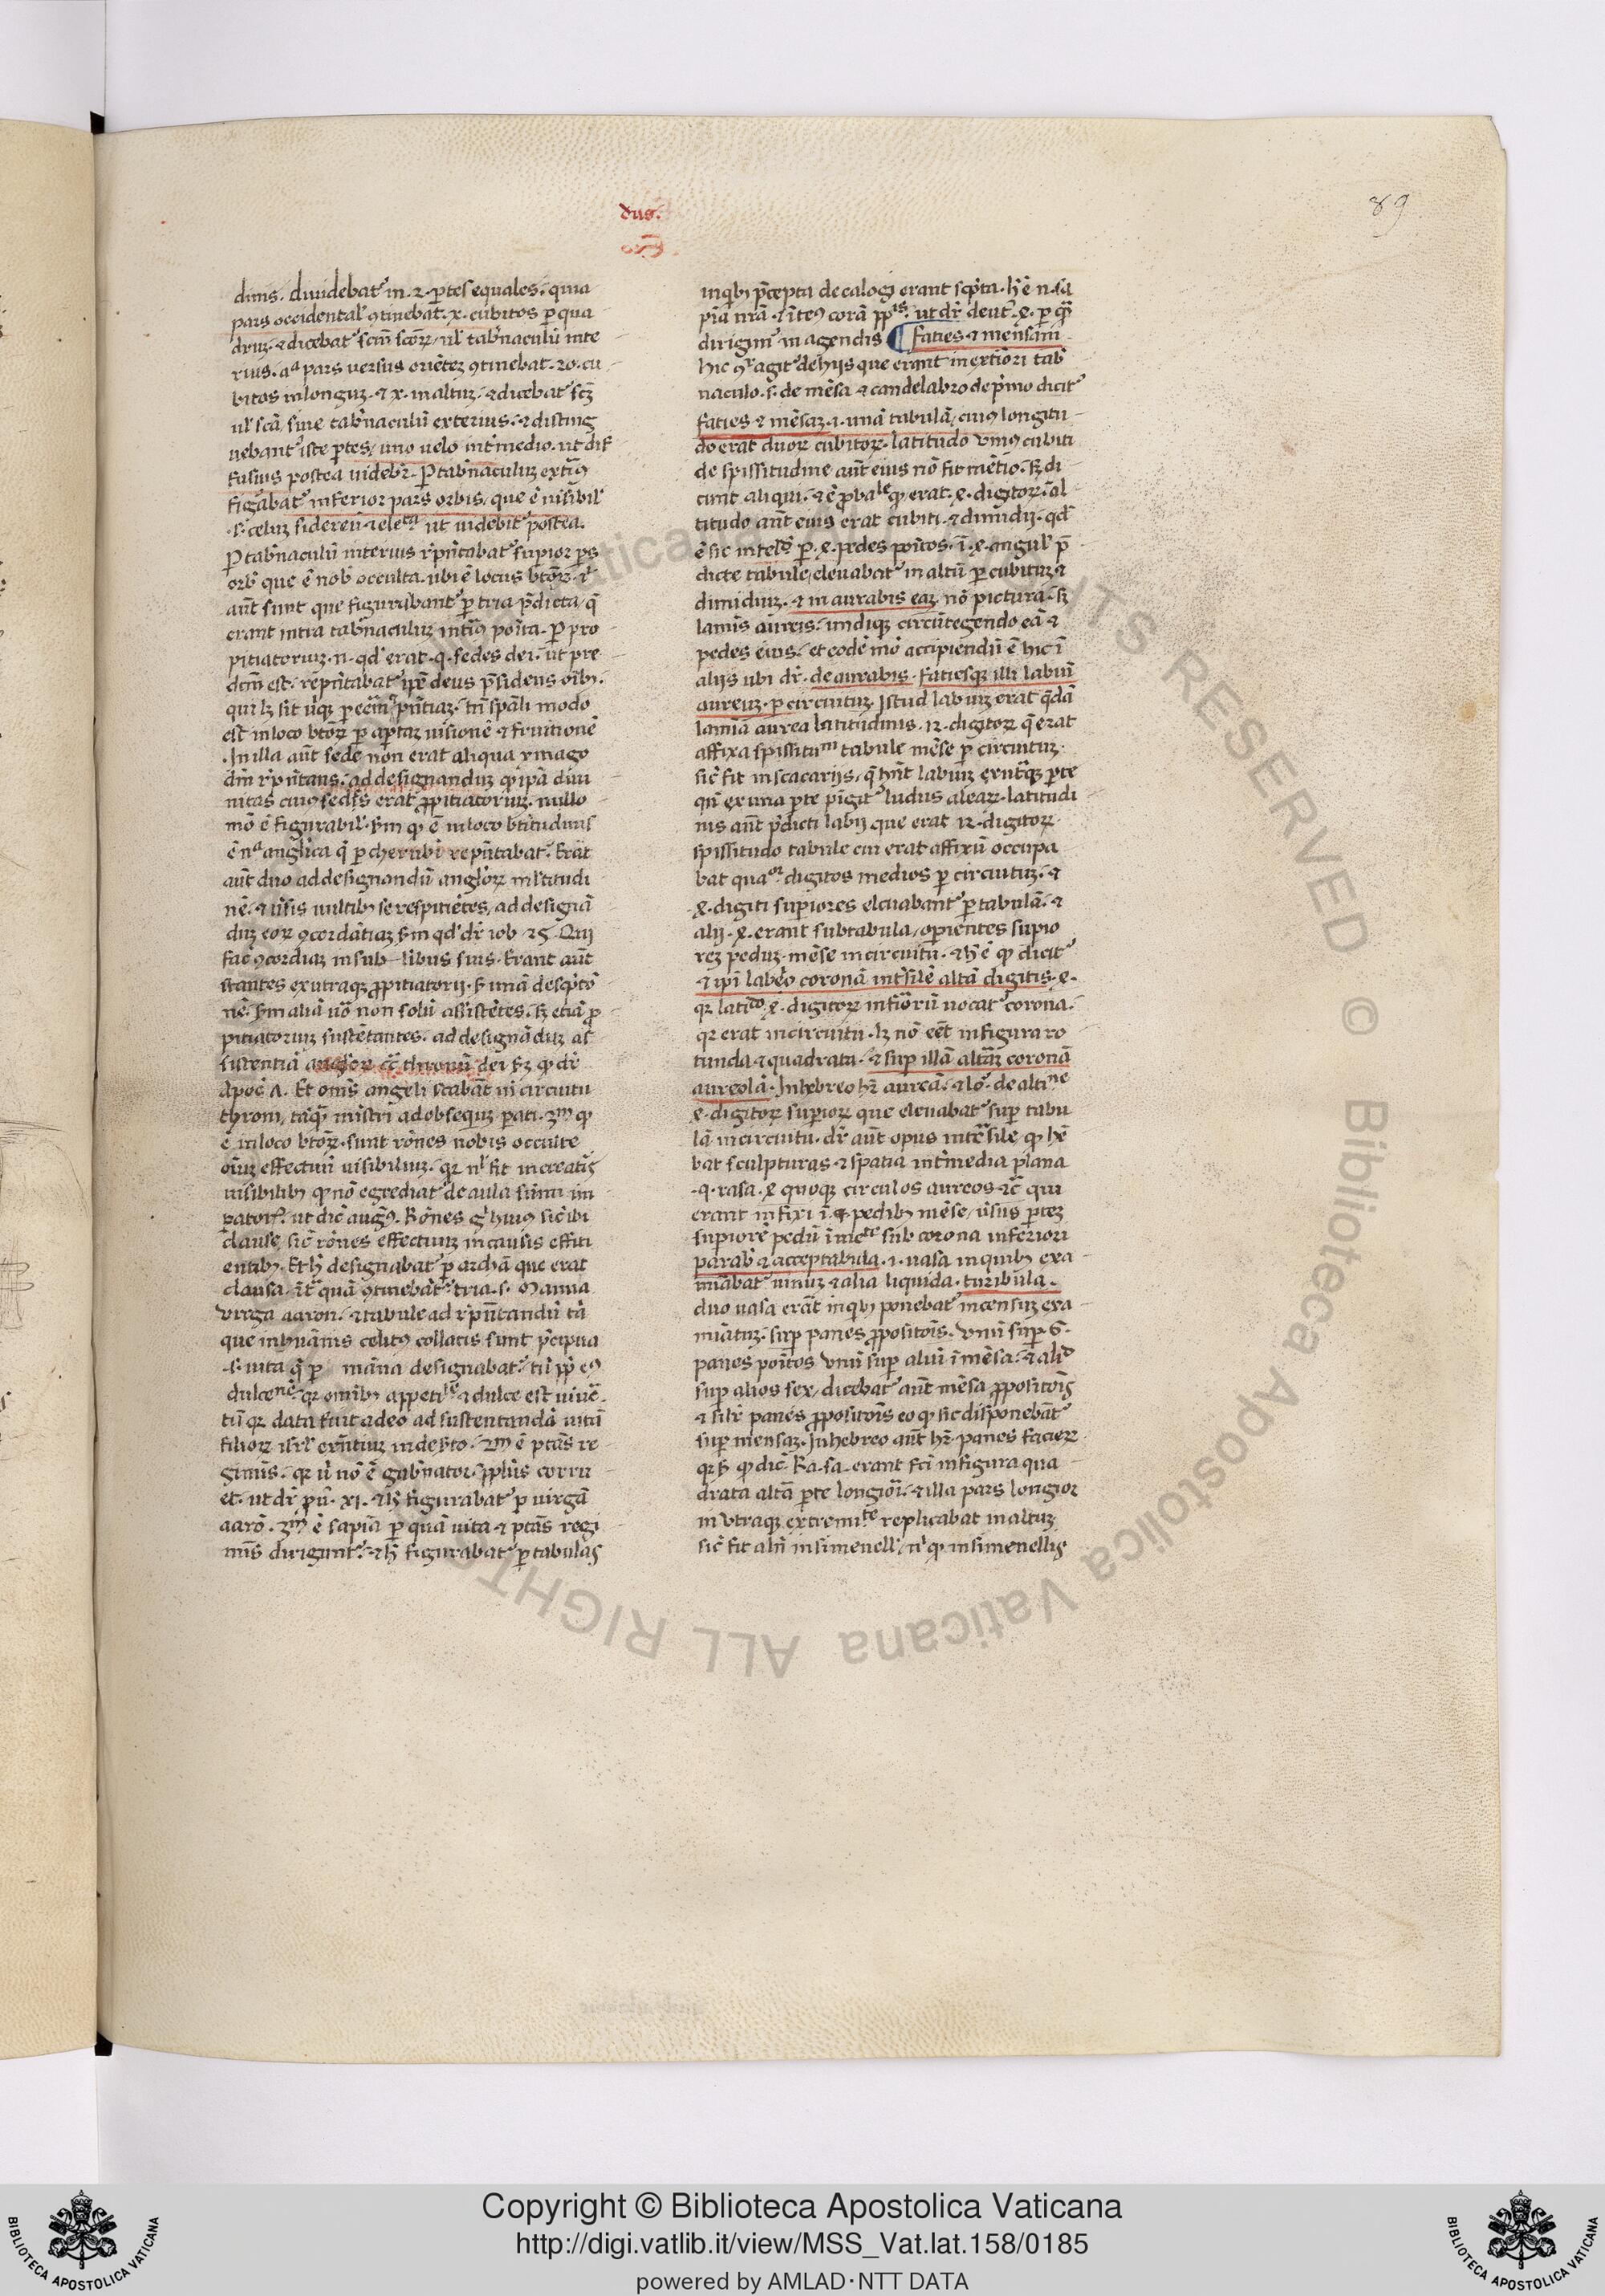 dus.
89
dinis. diuidebat᷒ in .2. ꝑtes equales. quia
pars occidental᷒ ꝯtinebat .x. cubitos ꝑ qua
druz. ⁊ dicebat᷒ scm̄ scōꝝ. ul᷒ tab᷒naculū inte
rius. aᵃ pars uersus oriētez ꝯtinebat .20. cu
bitos in longuz. ⁊ x. in altuz. ⁊ dicebat᷒
ul᷒ scā, siue tab᷒naculū exterius. ⁊ disting
uebant᷒ iste ꝑtes, uno uelo int᷒medio. ut dif
fusius postea uidebr̄. Ꝑ tab᷒naculuz
figābat᷒ inferior pars orbis, que ē uisibil᷒
.s. celuz sidereū ut uidebit᷒ postea.
Ꝑ tab᷒naculū interius superior ꝑs
orb᷒ que ē nob᷒ occulta. ubi ē locus btōꝝ.
aūt sunt que figurabant᷒ ꝑ tria p̄dicta, q̄
erant intra tab᷒naculuz posita. Ꝑ pro
pitiatoriuz .n. qd᷒ erat .q. sedes dei. ut pre
dcm̄ est. rep̄ntabat᷒ ip̄e deus p̄sidens oīb᷒.
est in loco btōꝝ ꝑ aꝑtaz uisionē ⁊ fruitionē
. In illa aūt sede non erat aliqua ymago
ad designanduz ꝙ ip̄a diui
nitas cuiꝰ sedes erat ꝓpitiatoriuz. nullo
mō ē figurabil᷒. ꝙ ē in loco btitudinis
ē nᵃ angl᷒ica q̄ ꝑ cherubī rep̄ntabat᷒. Erāt
aūt duo ad designandū angl᷒oꝝ ml᷒titudi
nē. ⁊ u᷒sis uultib᷒ se respitiētes, ad designā
duz eoꝝ ꝯcordātiaz qd᷒ dr̄ iob .25. Qui
fac᷒ ꝯcordiaz in sub-libus suis. Erant aūt
stantes ex utraqꝫ ꝓpitiatorij.
nē. aliā uō non solū assistētes. sꝫ etiā ꝓ
pitiatoriuz sustētantes. ad designāduz as
sistentiā angl᷒oꝝ thronū dei ꝙ dr̄
apoc̄ Λ. Et om̄s angeli stabāt in circuitu
throni, tāq̄ mīstri ad obsequiz ꝑati. 3ᵐ ꝙ
ē in loco btōꝝ. sunt rōnes nobis occulte
oīuz effectuū uisibiliuz. qꝛ nˡ fit in creatis
uisibilib᷒ ꝙ nō egrediat᷒ de aula sūmi im
ꝑatoris. ut dic̄ augꝰ. Rōnes huiꝰ sic̄ ibi
clause, sic̄ rōnes effectuuz in causis effiti
entib᷒. Et designabat᷒ ꝑ archā que erat
clausa. īt᷒ quā ꝯtinebāt᷒ tria .s. Manna
uirga aaron. ⁊ tabule ad rep̄ntandū tā
que in hūanis celitꝰ collatis sunt p̄cipua
.s. uita q̄ ꝑ māna designabat᷒
dulceⁿᵉ. qꝛ omīb᷒ appetiˡᵉ ⁊ dulce est uiuē.
tū qꝛ data fuit adeo ad sustentandā uitā
filioꝝ isrˡ in deserto. 2ᵐ ē ptās re
giminis. qꝛ u᷒ nō ē gub᷒nator. ppl᷒us corru
et. ut dr̄ .xi. ⁊ figurabat᷒ ꝑ uirgā
aarō. 3ᵐ ē sapīa ꝑ quā uita ⁊ ptās regi
minis dirigunt᷒. ⁊ figurabat᷒ ꝑ tabulas
in qib᷒ p̄cepta decalogi erant scpta.
ut dr̄ deut᷒.
dirigim᷒ in agendis ¶ Faties ⁊ mensam
hic agit᷒ de hijs que erant in extiori tab᷒
naculo .s. de mēsa ⁊ candelabro de p̄mo dicit᷒
faties ⁊ mēsaz .i. unā tabulā, cuiꝰ longitu
do erat duoꝝ cubitoꝝ. latitudo uniꝰ cubiti
de spissitudine aūt eius nō fit mētio. sꝫ di
cunt aliqui. ⁊ ē ꝓbaˡᵉ ꝙ erat .4. digitoꝝ. al
titudo aūt eius erat cubiti ⁊ dimidij. qd᷒
ē sic ꝑ .4. pedes positos .ī .4. angul᷒ p̄
dicte tabule, eleuabat᷒ in altū ꝑ cubituz ⁊
dimidiuz. ⁊ in aurabis eaz. nō pictura. sꝫ
lamis aureis. undiqꝫ circūtegendo eā ⁊
pedes eius. et eodē mō accipiendū ē hic ī
alijs ubi dr̄. deaurabis. fatiesqꝫ illi labiū
aureuz. ꝑ circuituz. Istud labiuz erat q̄dā
lamīa aurea latitudinis .12. digitoꝝ q̄ erat
affixa spissituⁿⁱ tabule mēse ꝑ circuituz.
sic̄ fit in scacarijs, q̄ hn̄t labiuz ex utāqꝫ ꝑte
qn̄ ex una ꝑte pīgit᷒ ludus aleaꝝ. latitudi
nis aūt p̄dicti labij que erat 12. digitoꝝ
spissitudo tabule cui erat affixū occupa
bat quaᵒʳ digitos medios ꝑ circuituz. ⁊
.4. digiti suꝑiores eleuabant᷒ ꝑ tabulā. ⁊
alij .4. erant sub tabula, oꝑientes supio
rez peduz mēse in circuitu. ⁊ ꝙ dicit᷒
⁊ ipi labeo coronā int᷒silē altā digitis .4.
qꝛ latiᵈᵒ .4. digitoꝝ infīoꝝū uocat᷒ corona.
qꝛ erat in circuitu. lꝫ nō eēt in figura ro
tunda ⁊ quadrata. ⁊ suꝑ illā altāz coronā
aureolā. In hebreo hr̄ aureā. ⁊ lō. de altiⁿᵉ
4. digitoꝝ suꝑioꝝ que eleuabat᷒ suꝑ tabu
lā in circuitu. dr̄ aūt opus intᵃsile ꝙ hē
bat sculpturas ⁊ spatia int᷒media plana
.q. rasa. 4 quoqꝫ circulos aureos ⁊c̄ qui
erant infixi ī .4. pedib᷒ mēse, u᷒sus ꝑtez
suꝑiorē pedū sub corona inferiori
parab᷒ ⁊ acceptabula .i. uasa in quib᷒ exa
mīabat᷒ uinuz ⁊ alia liquida. turibula.
duo uasa erāt in qib᷒ ponebat᷒ incensuz exa
minatuz. suꝑ panes ꝓpositōis. unū suꝑ .6.
panes positos unū suꝑ aliū ī mēsa. ⁊ aliᵈ
suꝑ alios sex, dicebat᷒ aūt mēsa ꝓpositōis
⁊ silr̄ panes ꝓpositōis eo ꝙ sic disponebāt᷒
suꝑ mensaz. In hebreo aūt hr̄. panes facieꝝ
ꝙ dic̄ Ra. sa. erant fc̄i in figura qua
drata altā ꝑte longiōi. ⁊ illa pars longior
in utraqꝫ extremiᵗᵉ replicabat in altuz
sic̄ fit in simenell᷒, in simenellis
Copyright © Biblioteca Apostolica Vaticana
http://digi.vatlib.it/view/MSS_Vat.lat.158/0185
powered by AMLAD·NTT DATA
BIBLIOTECA APOSTOLICA VATICANA
BIBLIOTECA APOSTOLICA VATICANA